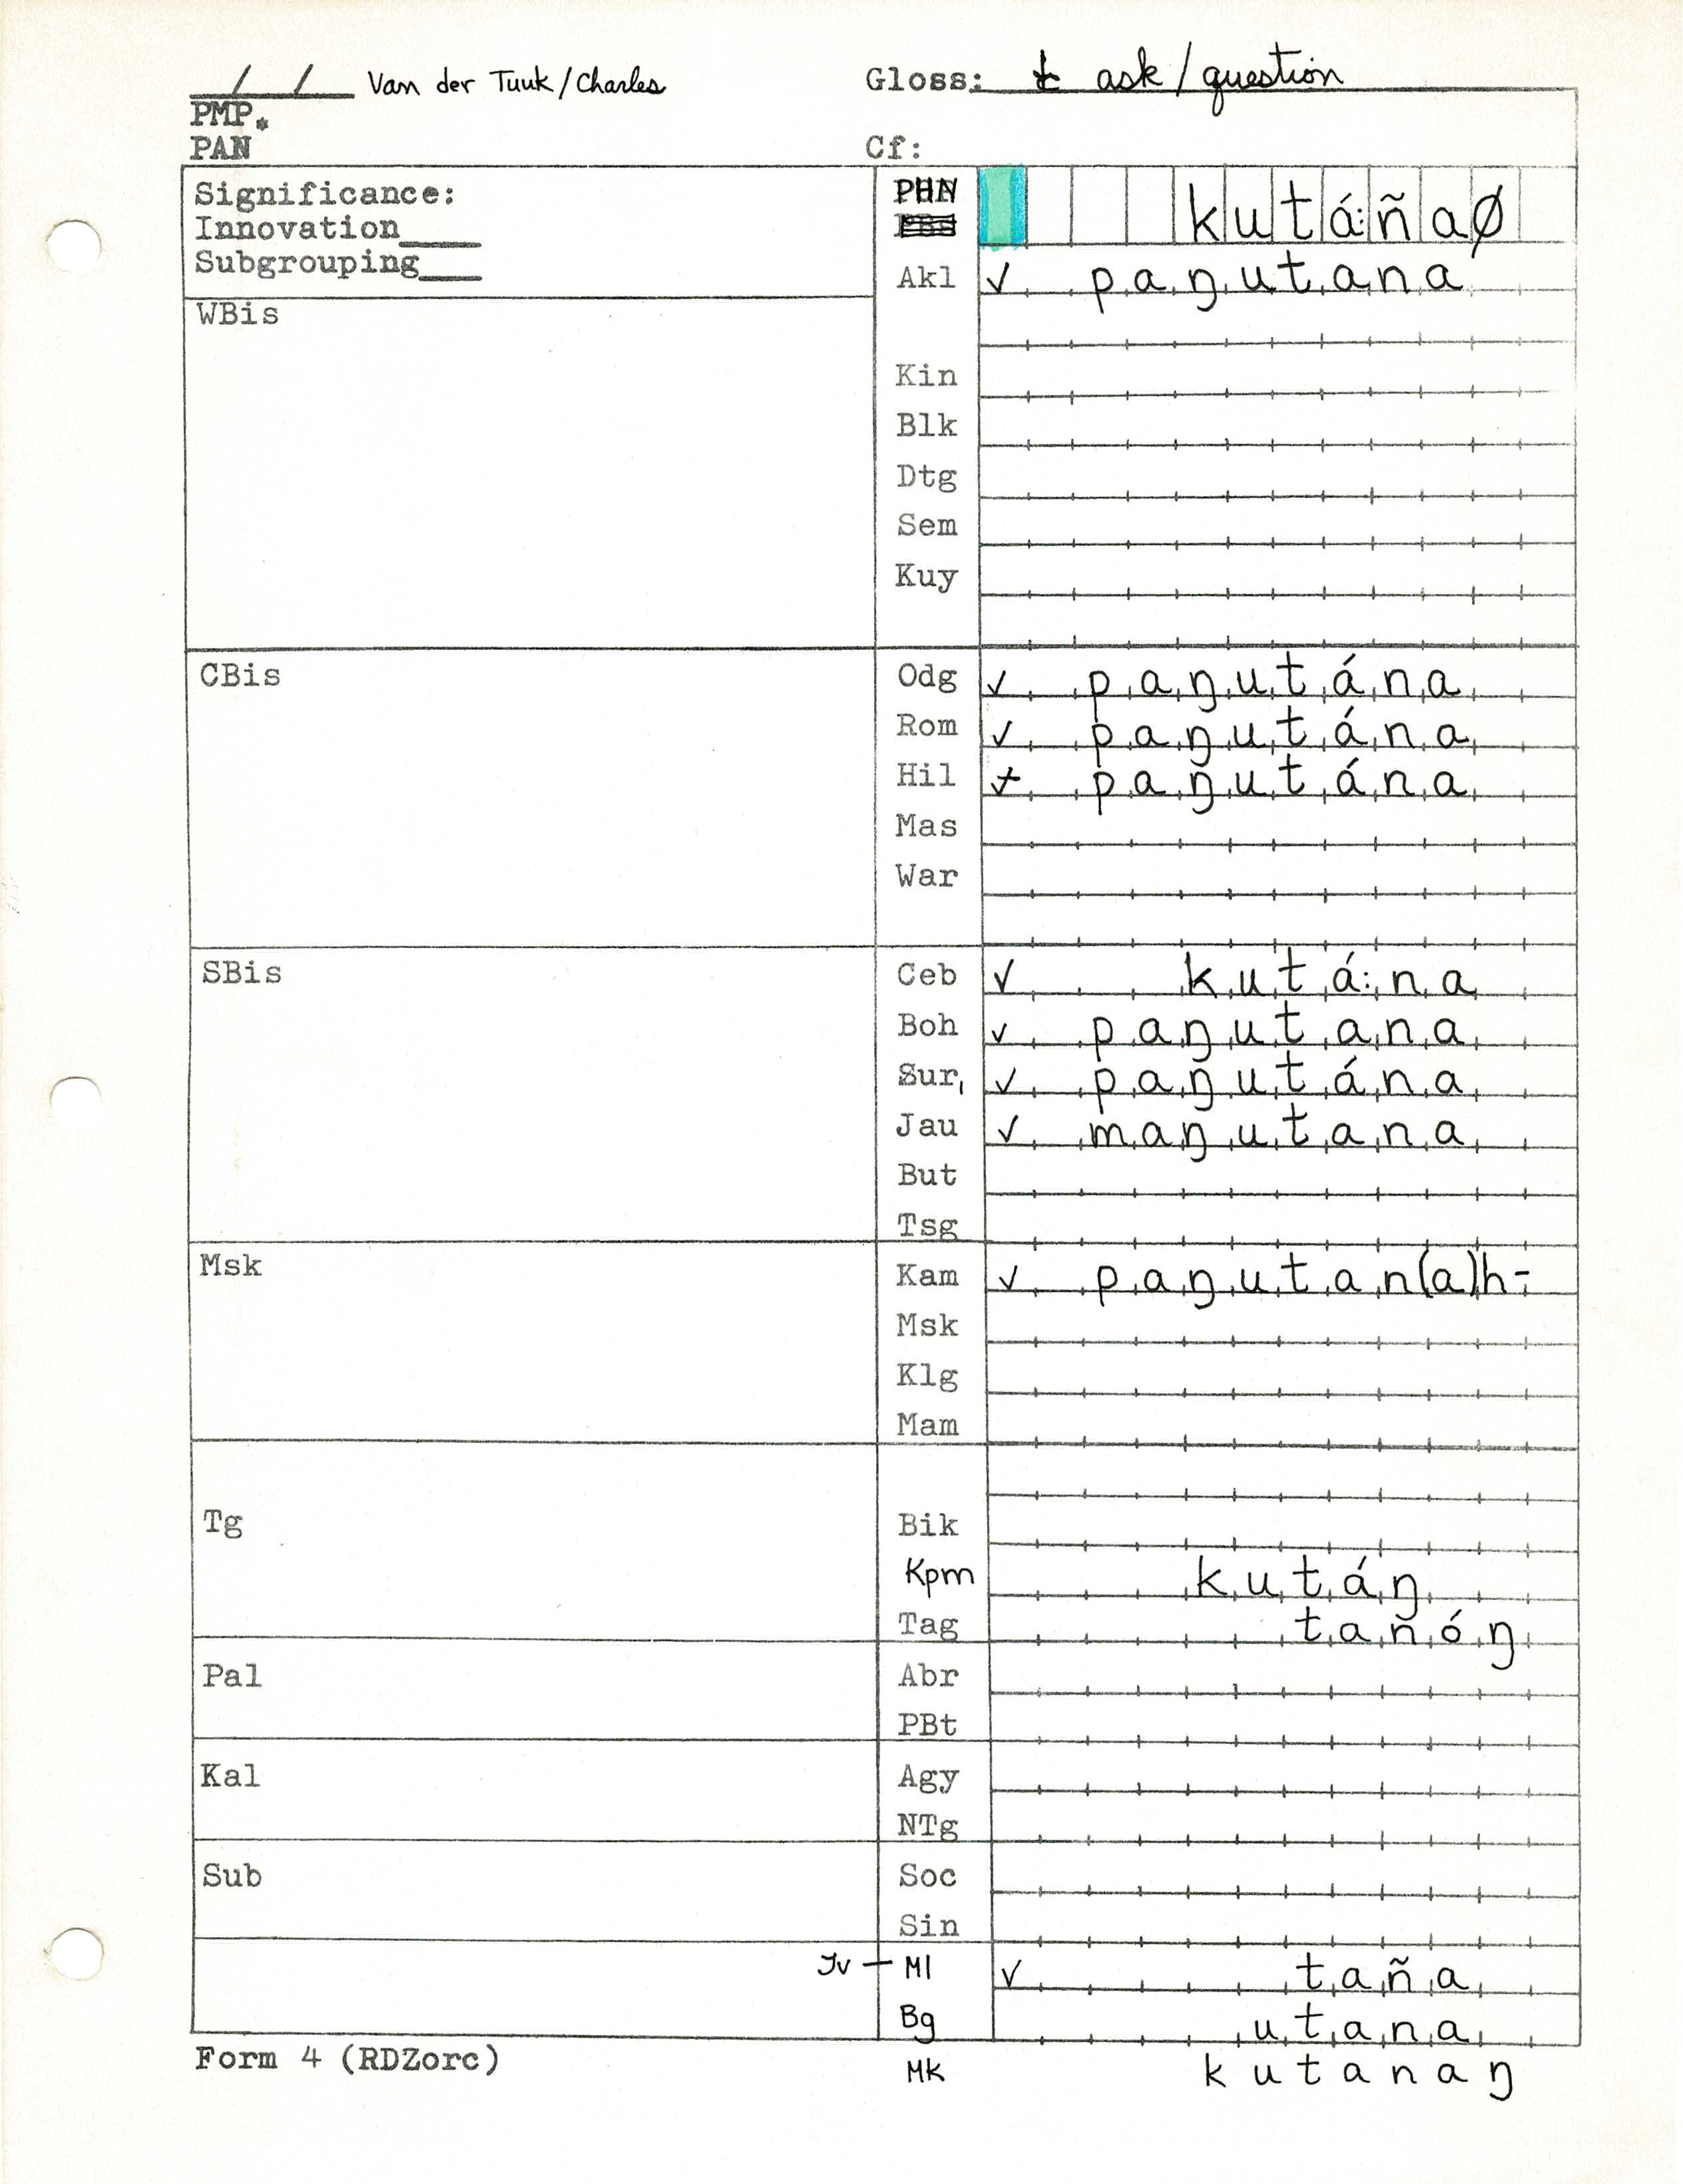 _/_/_ Van der Tuuk/Charles Gloss: ask/question
PMP*
PAN Cf:
Significance: PHN kutá:ñaø
Innovation____
Subgrouping___ Akl ✓ paŋutana
WBis
Kin
Blk
Dtg
Sem
Kuy
CBis Odg ✓ paŋutána
Rom ✓ paŋutána
Hil + paŋutána
Mas
War
SBis Ceb ✓ kutá:na
Boh ✓ paŋutana
Sur ✓ paŋutána
Jau ✓ maŋutana
But
Tsg
Msk Kam ✓ paŋutan(a)h-
Msk
Klg
Mam
Tg Bik
Kpm kutáŋ
Tag tanóŋ
Pal Abr
PBt
Kal Agy
NTg
Sub Soc
Sin
Jv – Ml ✓ taña
Bg utana
Form 4 (RDZorc) Mk kutanaŋ